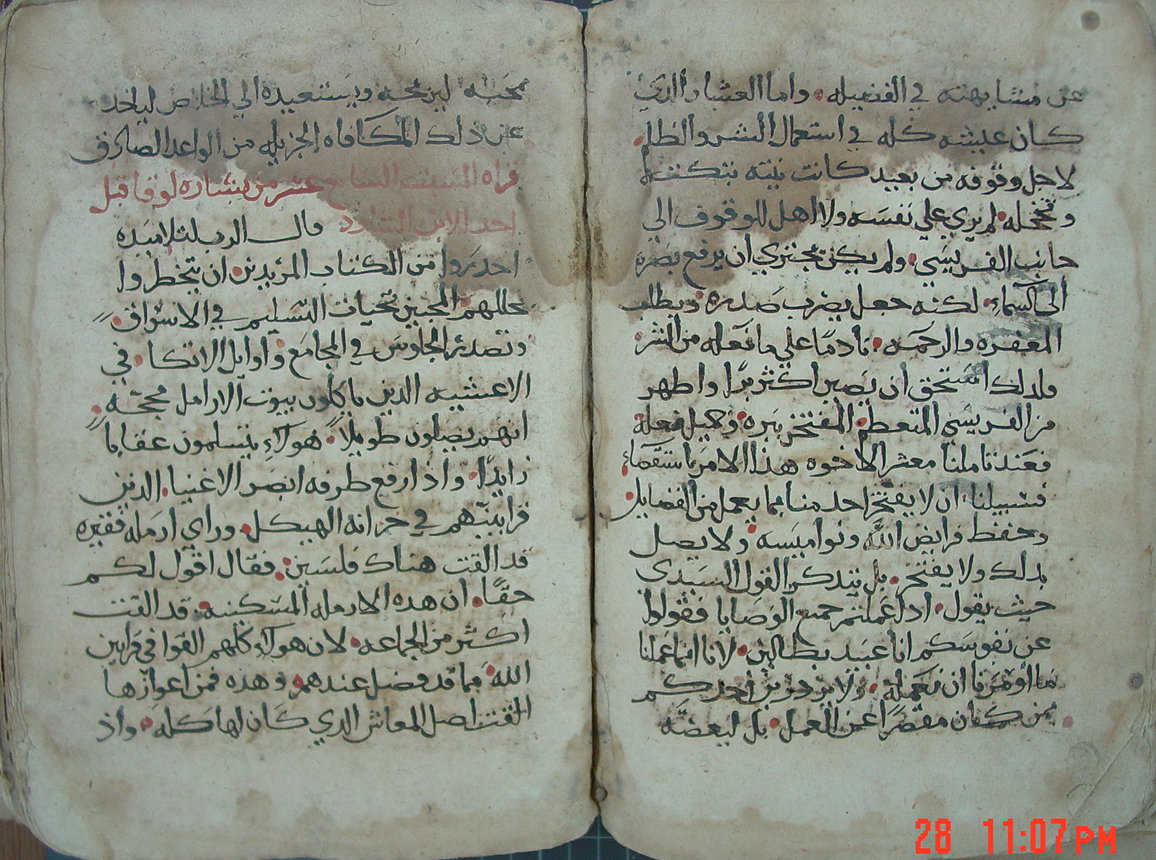 عن مشابهته في الفضيله. واما العشار الدي
كان عيشه كله في استعمال الشر والظلم
لاجل وقوفه من بعيد كانت نيته تنكته
وتخجله. لم يري علي نفسه ولا اهل للوقوف الي
جانب الفريسي. ولم يكن يجتري ان يرفع بصره
الي السماء. لكنه جعل يضرب صدره. ويطلب
المغفره والرحمه. نادمًا علي ما فعله من الشر
ولدلك استحق ان يصير اكثر برًا واطهر
من الفريسي المتعظم. المفتخر ببره وجميل فعله
فعند تاملنا معشر الاخوه هدا الامر باستقصاء
فسبيلنا ان لا يفتخر احد منا بما يعمل من الفضايل
وحفظ فرايض الله ونواميسه ولا يصل
بدلك ولا يفتخر. بل يتدكر القول السيدي
حيث يقول. ادا عملتم جميع الوصايا فقولوا
عن نفوسكم انا عبيد بطالين. لانا انما عملنا
ما اومرنا ان نعمله. ولا يزدري احدكم
بمن كان مقصرًا عن العمل. بل ليعضه
بمحبه لين محبه ويستعيده الي الخلاص لياخد
عن دلك المكافاه الجزيله من الواعد الصادق
قراه السبت السابع عشر من بشاره لوقا قبل
احد الابن الشارد قال الرب لتلاميده
احدروا من الكتاب المريدين ان يتخطروا
بحللهم المحبين تحيات التسليم في الاسواق.
وتصدير الجلوس في المجامع واوايل الاتكا. في
الاعشيه الدين ياكلون بيوت الارامل بحجة.
انهم يصلون طويلًا. هولاء يتسلمون عقابًا
زايدًا. واد ارفع طرفه ابصر الاغنيا. الدين
قرابينهم في خزانه الهيكل. وراي ارمله فقيره
قد القت هناك فلسين. فقال اقول لكم
حقًا. ان هده الارمله المسكينه. قد القت
اكثر من الجماعه. لان هولاء كلهم القوا في قرابين
الله. مما قد فضل عندهم. وهده فمن اعوازها
القت اصل المعاش الدي كان لها كله. واد
28 11:07PM